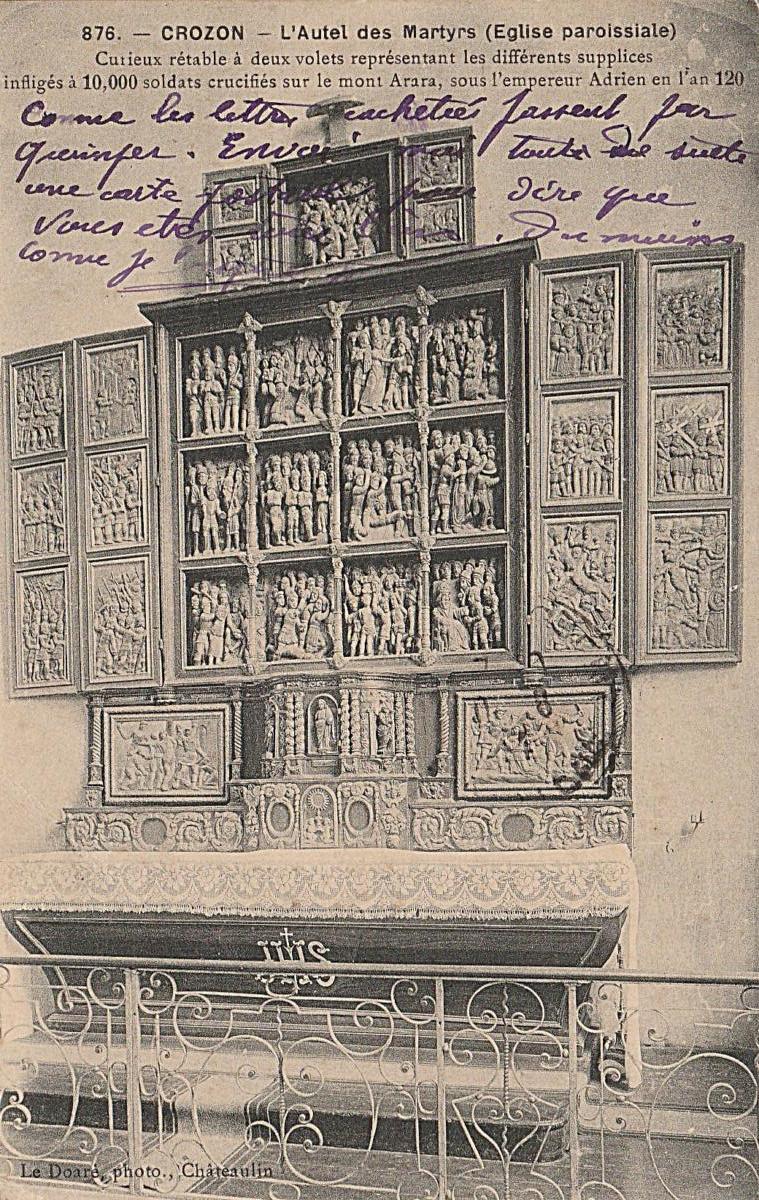 876. — CROZON — L'Autel des Martyrs (Eglise paroissiale)
Curieux rétable à deux volets représentant les différents supplices
infligés à 10,000 soldats crucifiés sur le mont Arara, sous l'empereur Adrien en l'an 120
Comme les lettres cachetées passent par
Quimper. Envoi moi toute de suite
une carte postale pour dire que
vous etes bien. Du moins
comme je
IHS
Le Doaré, photo., Châteaulin